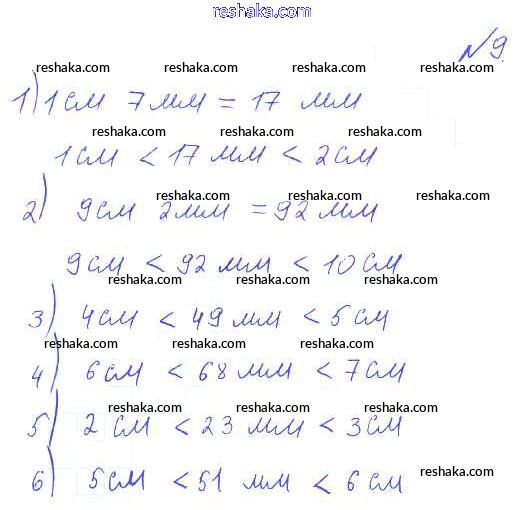 reshaka.com
№ 9.
reshaka.com reshaka.com reshaka.com reshaka.com
1) 1 см 7 мм = 17 мм
reshaka.com reshaka.com reshaka.com
1 см < 17 мм < 2 см
reshaka.com reshaka.com reshaka.com
2) 9 см 2 мм = 92 мм
reshaka.com reshaka.com reshaka.com
9 см < 92 мм < 10 см
reshaka.com reshaka.com reshaka.com
3) 4 см < 49 мм < 5 см
reshaka.com reshaka.com reshaka.com
4) 6 см < 68 мм < 7 см
reshaka.com reshaka.com reshaka.com
5) 2 см < 23 мм < 3 см
reshaka.com reshaka.com reshaka.com reshaka.com
6) 5 см < 51 мм < 6 см
reshaka.com reshaka.com reshaka.com